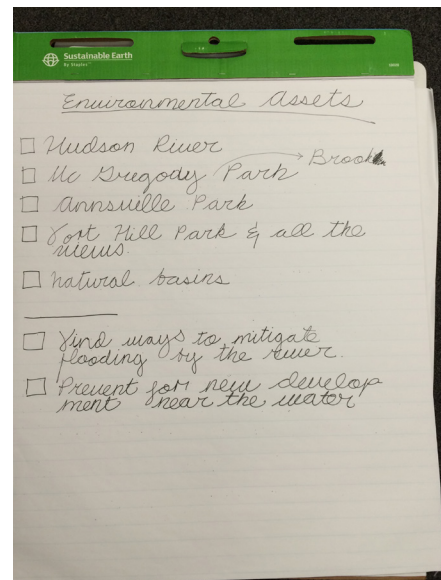 Sustainable Earth
By Staples
Environmental Assets
Hudson River
Mc Gregody Park → Brook
Annsville Park
Fort Hill Park & all the
views.
natural basins
Find ways to mitigate
flooding by the river.
Prevent for new develop
ment near the water